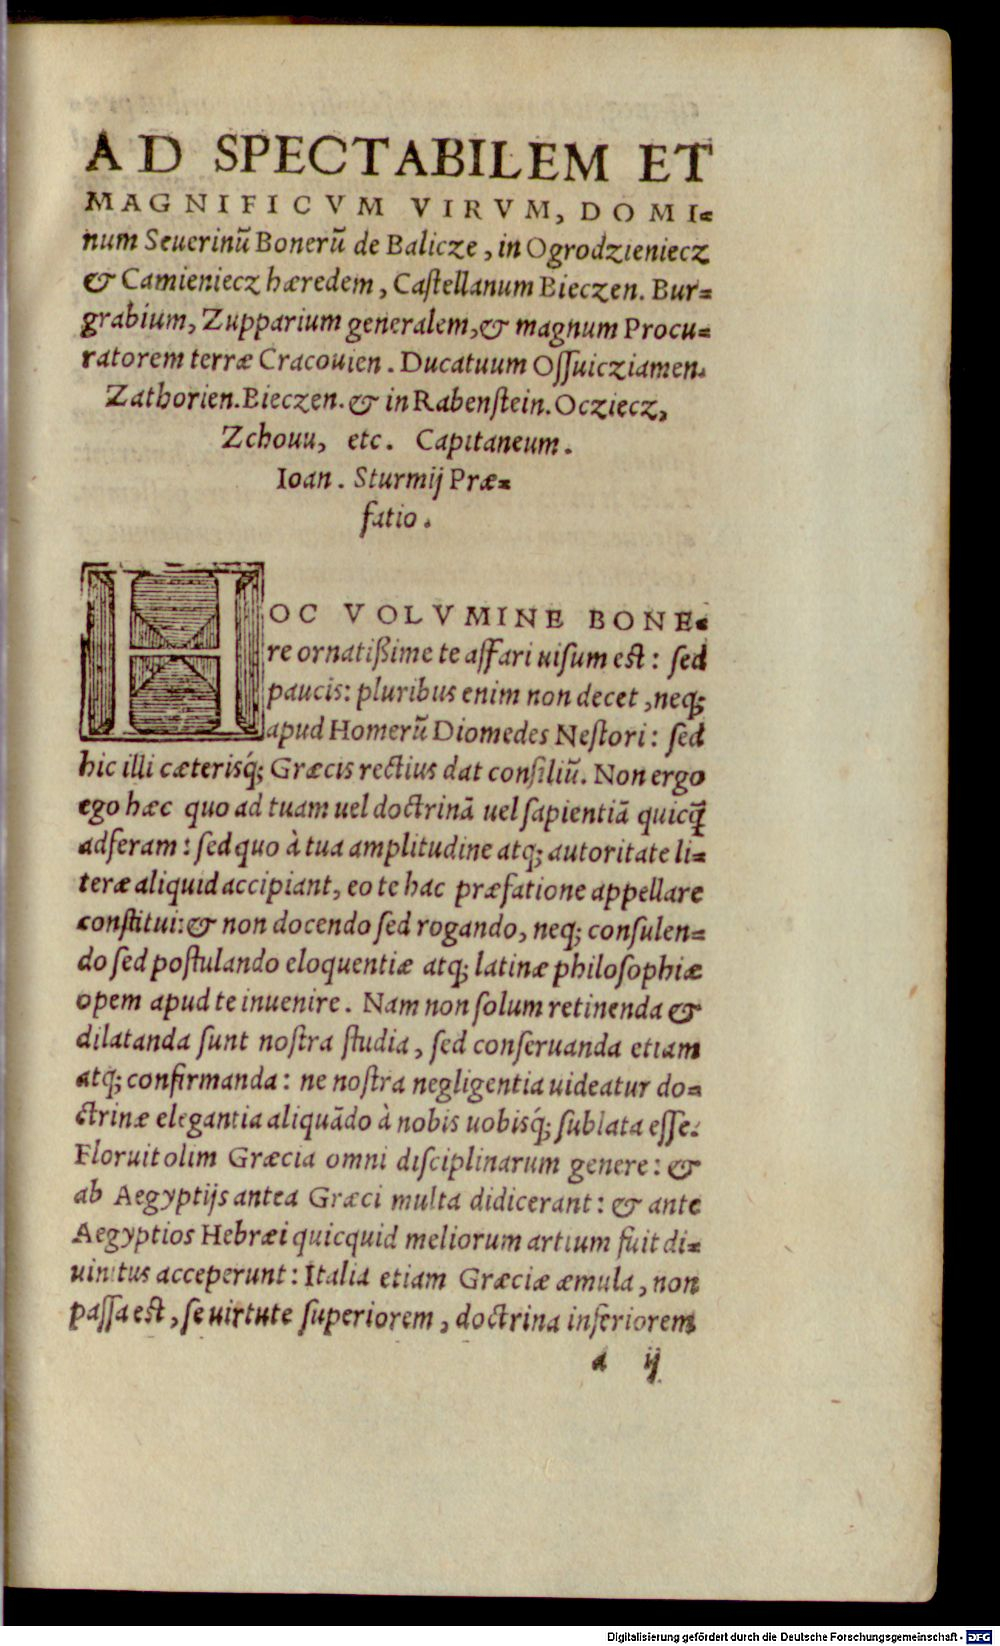 AD SPECTABILEM ET
MAGNIFICVM VIRVM, DOMI⸗
num Seuerinū Bonerū de Balicze, in Ogrodzieniecz
& Camieniecz hæredem, Caſtellanum Bieczen. Bur⸗
grabium, Zupparium generalem, & magnum Procu⸗
ratorem terræ Cracouien. Ducatuum Oſſuicziamen.
Zathorien. Bieczen. & in Rabenſtein. Ocziecz,
Zchouu, etc. Capitaneum.
Ioan. Sturmij Præ⸗
fatio.
HOC VOLVMINE BONE⸗
re ornatißime te affari uiſum est: ſed
paucis: pluribus enim non decet, neq;
apud Homerū Diomedes Neſtori: ſed
hic illi cæterisq́; Græcis rectius dat conſiliū. Non ergo
ego hæc quo ad tuam uel doctrinā uel ſapientiā quicq̄
adferam: ſed quo à tua amplitudine atq; autoritate li⸗
teræ aliquid accipiant, eo te hac præfatione appellare
conſtitui: & non docendo ſed rogando, neq; conſulen⸗
do ſed poſtulando eloquentiæ atq; latinæ philoſophiæ
opem apud te inuenire. Nam non ſolum retinenda &
dilatanda ſunt noſtra ſtudia, ſed conſeruanda etiam
atq; confirmanda: ne noſtra negligentia uideatur do⸗
ctrinæ elegantia aliquādo à nobis uobisq́; ſublata eſſe.
Floruit olim Græcia omni diſciplinarum genere: &
ab Aegyptijs antea Græci multa didicerant: & ante
Aegyptios Hebræi quicquid meliorum artium fuit di⸗
uinitus acceperunt: Italia etiam Græciæ æmula, non
paſſa est, ſe uirtute ſuperiorem, doctrina inferiorem
a ij
Digitalisierung gefördert durch die Deutsche Forschungsgemeinschaft - DFG